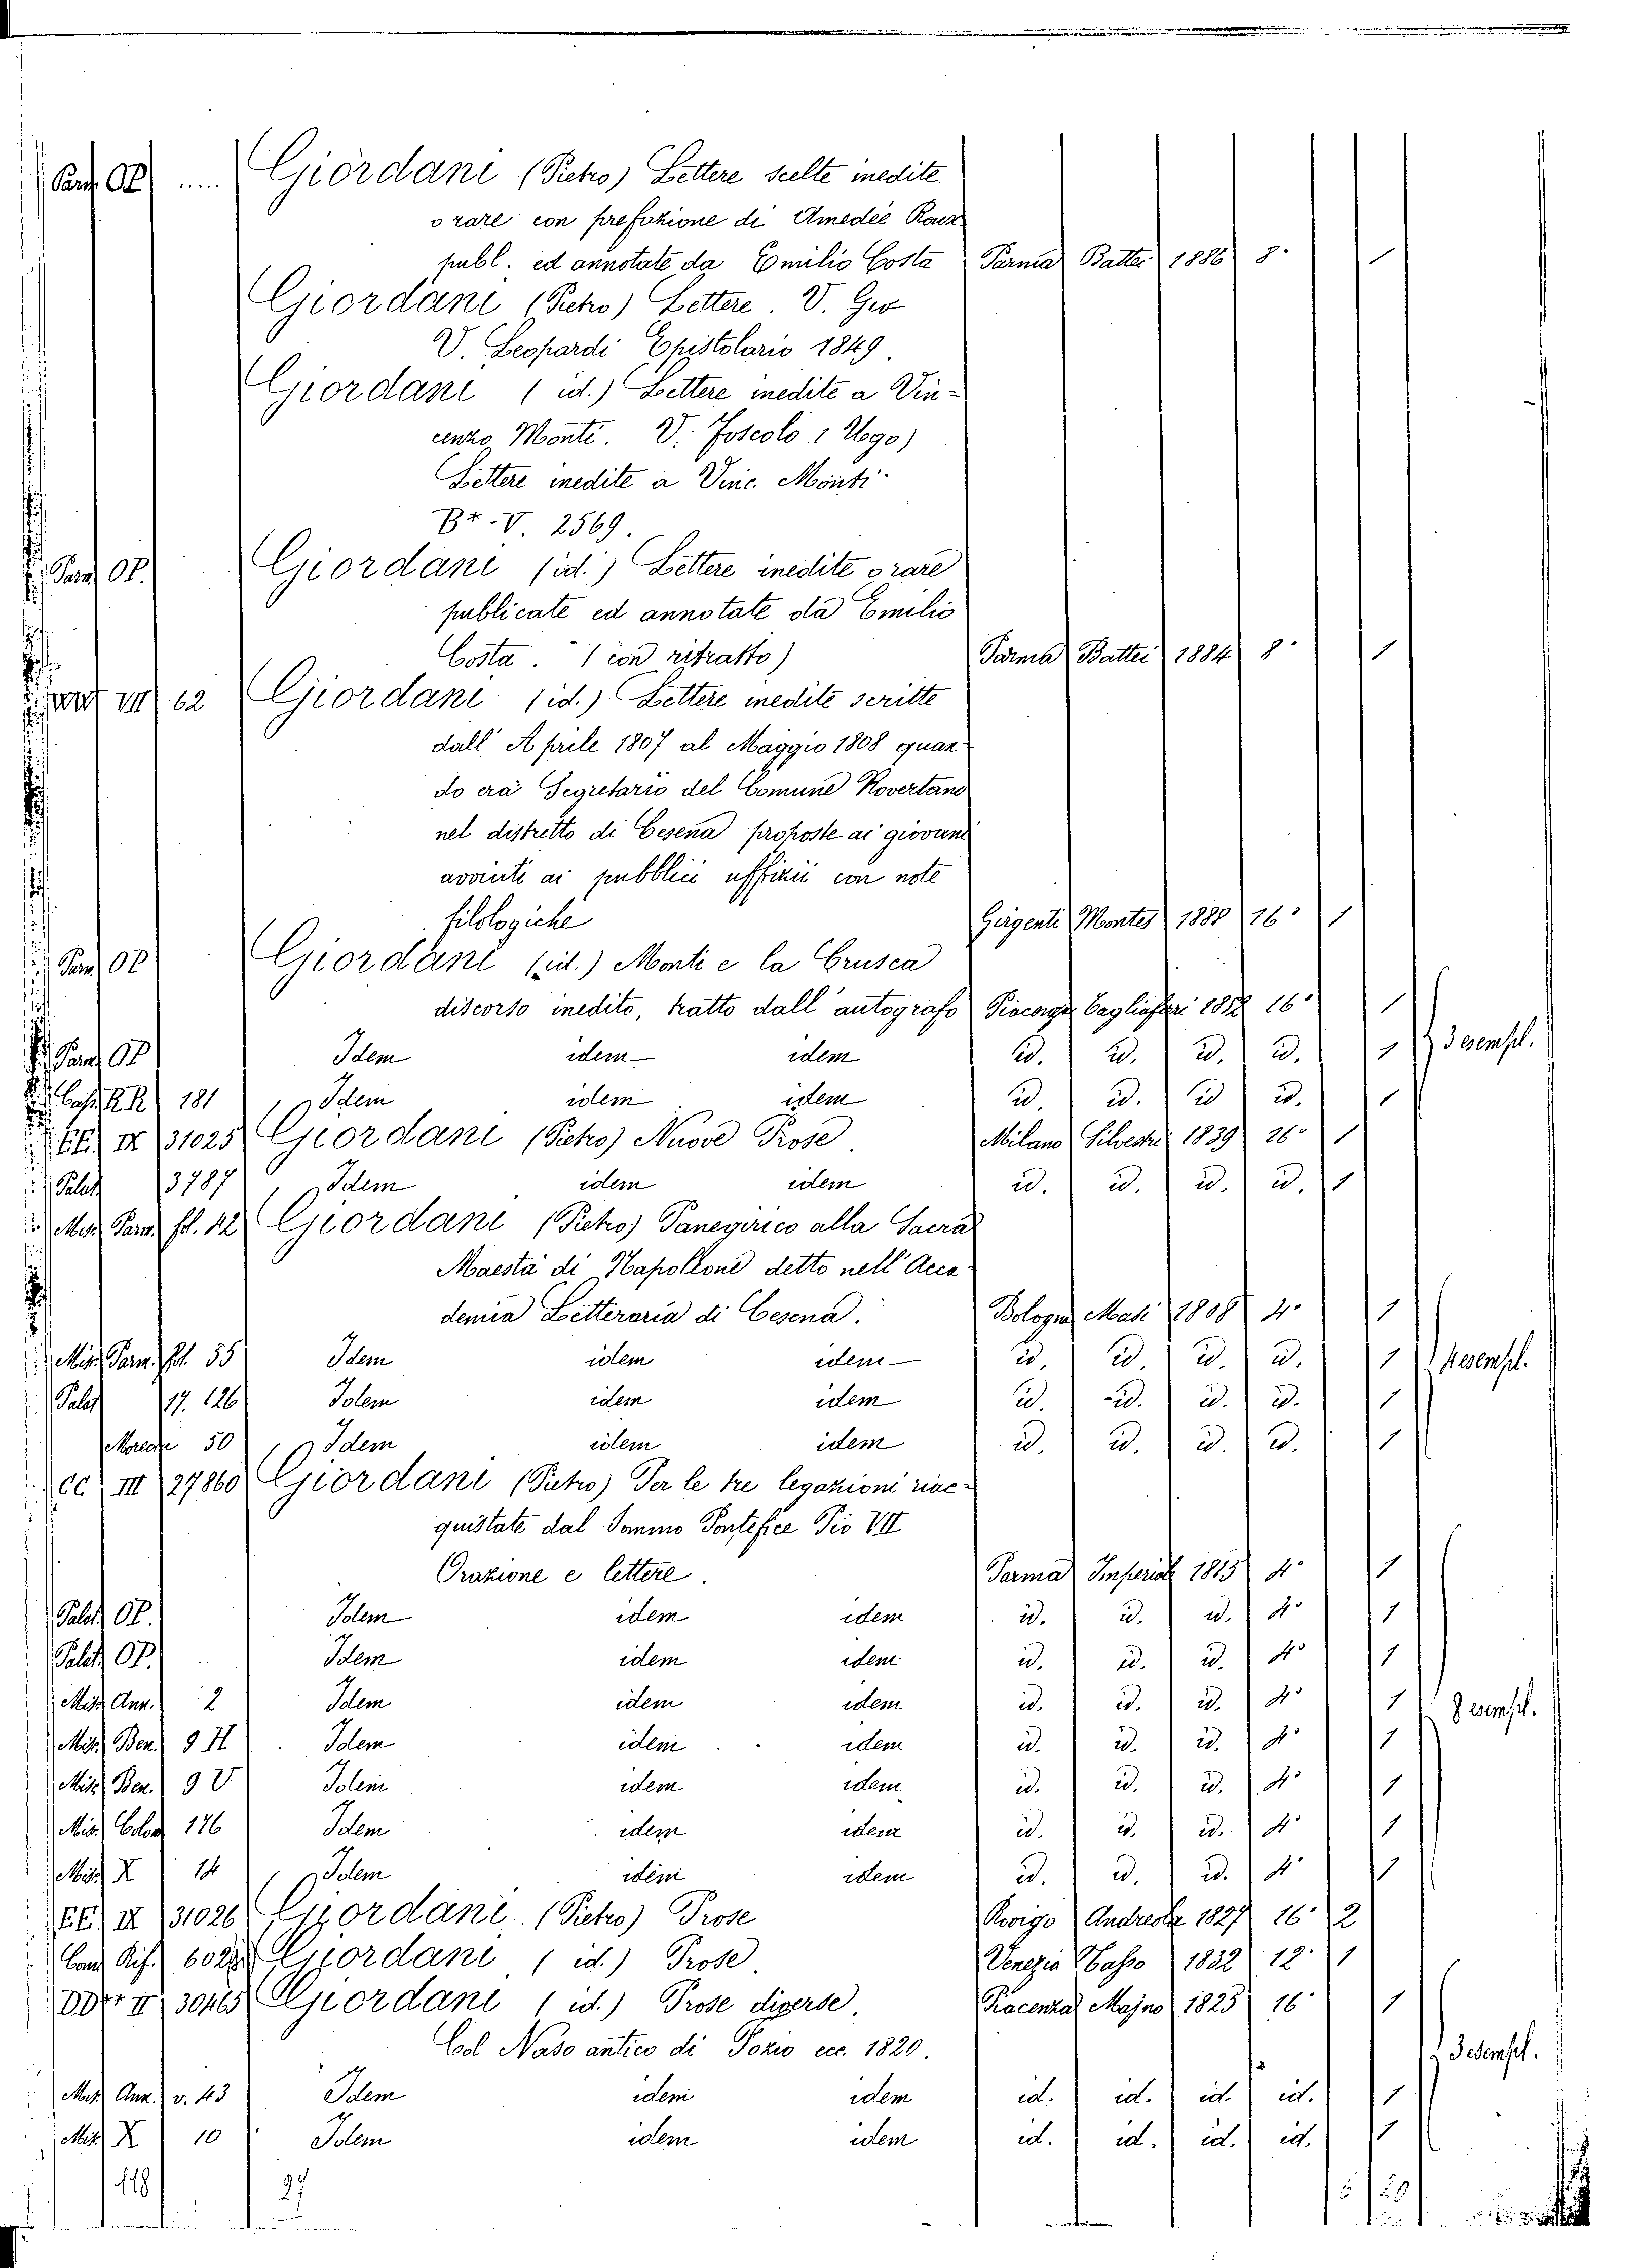 Parm. OP. .... Giordani (Pietro) Lettere scelte inedite
o rare con prefazione di Amedée Roux
publ. ed annotate da Emilio Costa Parma Battei 1886 8.° 1
Giordani (Pietro) Lettere. V. Gio
V. Leopardi Epistolario 1849.
Giordani (id.) Lettere inedite a Vin-
cenzo Monti. V. Foscolo (Ugo)
Lettere inedite a Vinc. Monti
B* V. 2569.
Parm. OP. Giordani (id.) Lettere inedite o rare
publicate ed annotate da Emilio
Costa. (con ritratto) Parma Battei 1884 8.° 1
VII 62 Giordani (id.) Lettere inedite scritte
dall' Aprile 1807 al Maggio 1808 quan
do era Segretario del Comune Rovertano
nel distretto di Cesena proposte ai giovani
avviati ai pubblici uffizii con note
filologiche Girgenti Montes 1880 16.° 1
Parm. OP. Giordani (id.) Monti e la Crusca
discorso inedito, tratto dall' autografo Tagliaferri 16.° 1
Parm. OP. Idem idem idem id. id. id. id. 1 3 esempl.
R.R. 181 Idem idem idem id. id. id. id. 1
EE. IX 31025 Giordani (Pietro) Nuove Prose. Milano Silvestri 1839 16.° 1
Palat. 3787 Idem idem idem id. id. id. id. 1
Misc. Parm. fol. 12 Giordani (Pietro) Panegirico alla Sacra
Maestà di Napoleone detto nell' Acca-
demia Letteraria di Cesena. Bologna Masi 1808 4.° 1
Misc. Parm. fol. 55 Idem idem idem id. id. id. id. 1 4 esempl.
Palat. 17. 126 Idem idem idem id. id. id. id. 1
Moreau 50 Idem idem idem id. id. id. id. 1
CC III 27860 Giordani (Pietro) Per le tre legazioni riac-
quistate dal Sommo Pontefice Pio VII
Orazione e lettere. Parma Imperiale 1815 4.° 1
Palat. OP. Idem idem idem id. id. id. 4.° 1
Palat. OP. Idem idem idem id. id. id. 4.° 1
Misc. Ann. 2 Idem idem idem id. id. id. 4.° 1 8 esempl.
Misc. Ben. 9 H Idem idem idem id. id. id. 4.° 1
Misc. Ben. 9 V Idem idem idem id. id. id. 4.° 1
Misc. Colom. 176 Idem idem idem id. id. id. 4.° 1
Misc. X 14 Idem idem idem id. id. id. 4.° 1
EE. IX 31026 Giordani (Pietro) Prose Rovigo Andreola 1827 16.° 2
Cand. Rif. Giordani (id.) Prose. Venezia Basso 1832 12.° 1
DD* II 30465 Giordani (id.) Prose diverse. Piacenza Majno 1825 16.° 1
Col Naso antico di Pozio ecc. 1820. 3 esempl.
Misc. Ann. v. 43 Idem idem idem id. id. id. id. 1
Misc. X 10 Idem idem idem id. id. id. id. 1
118 27